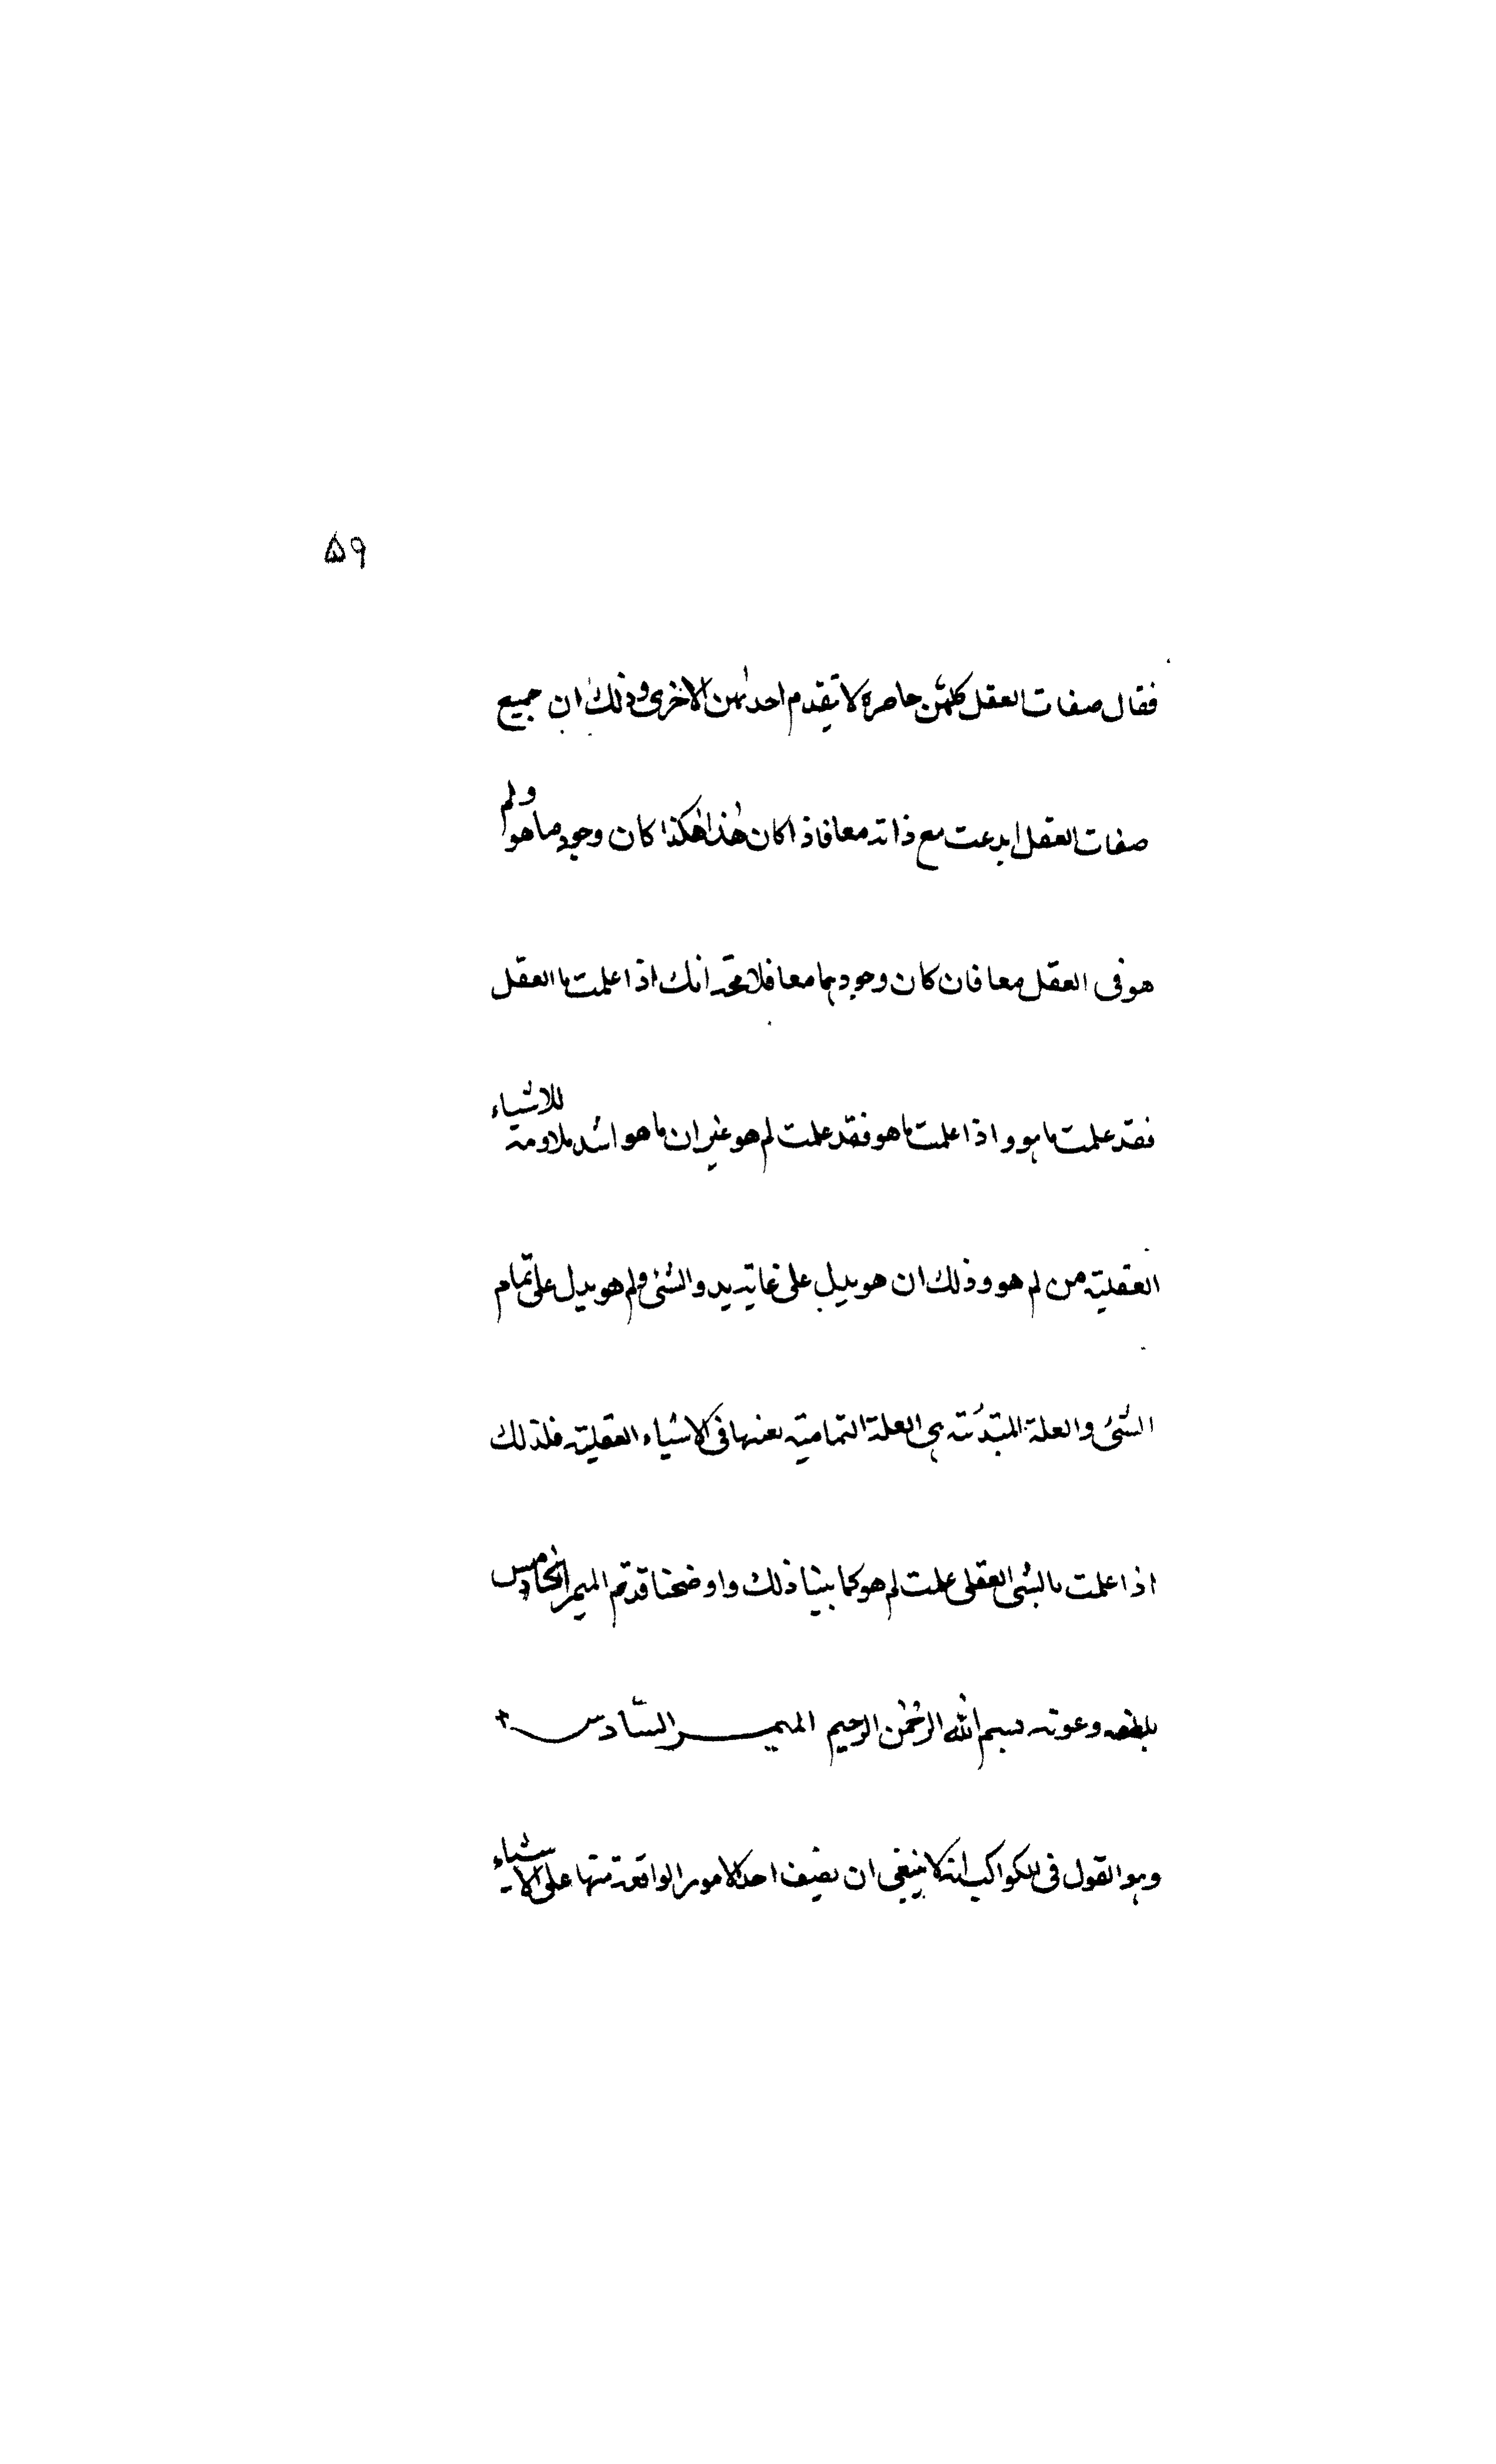 ۵۹
فقال صفات العقل كلهن حاصرة لا تيقدم احدٰىهن الاخرى وذٰلك ان جميع
صفات العقل ابدعت مع ذاته معا فاذا كان هٰذا هٰكذا كان وجود ما هو ولم
هو فى العقل معا فان كان وجودهما معا فلا محة انك اذا علمت ما العقل
فقد علمت ما هو و اذا علمت ما هو فقد علمت لم هو غير ان ما هو اشد ملاومة للاشياء
العقلية من لم هو و ذلك ان هو يدل على غاية بدو الشئ ولم هو يدل على تمام
الشئ والعلة المبتدئة هى العلة التمامية بعنها فى الاشياء العقلية فلذلك
اذا علمت ما الشئ العقلى علمت لم هو كما بينا ذلك واوضحنا قد تم الميمر الخامس
بلطفه وعونه بسم الله الرحمٰن الرحيم الميمر السّادس +
وهو القول فى الكواكب انه لا ينبغى ان يضيف احد الامور الواقعة منها على الاشياء